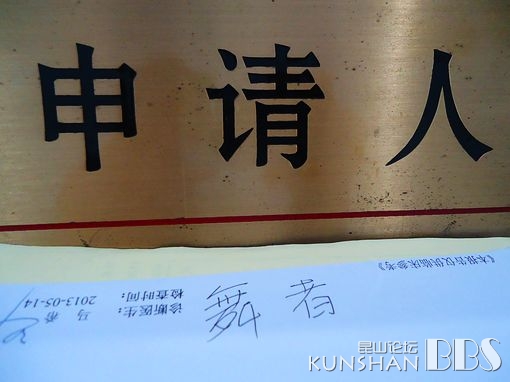 申请人
《本报告仅供临床参考》
检查时间: 2013-05-14
诊断医生: 马
舞者
昆山论坛
KUNSHAN BBS